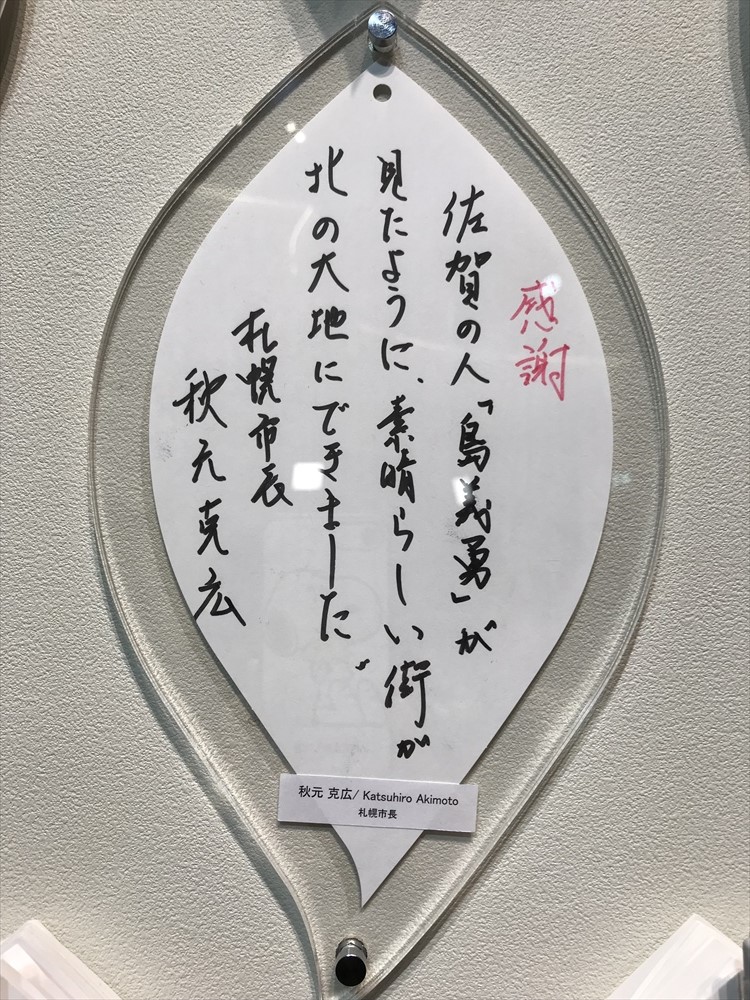 感謝
佐賀の人「島義勇」が
見たように、素晴らしい街が
北の大地にできました。
札幌市長
秋元克広
秋元 克広/ Katsuhiro Akimoto
札幌市長